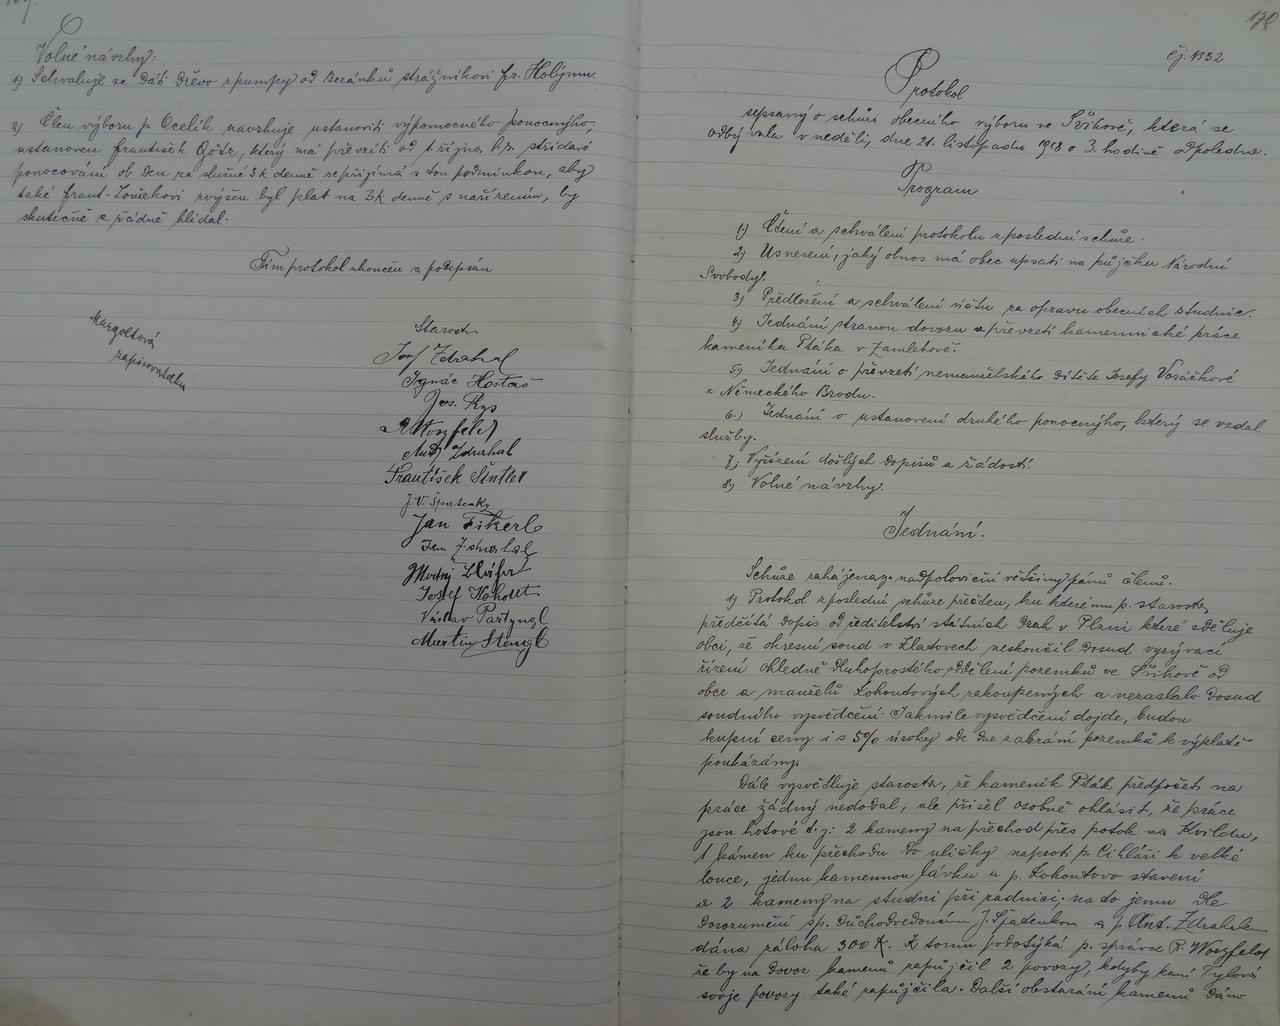 Volné návrhy:
1) Schvaluje se dáti dřevo z pumpy od Beránků strážníkovi fr. Holýmu.
2) Člen výboru p. Ocelík navrhuje ustanoviti výpomocného ponocného,
ustanoven František Götz, který má převzíti od 1. října t.r. střídavě
ponocování ob den za slušné 3 k denně se přijímá s tou podmínkou, aby
také frant. zvýšen byl plat na 3 K denně s nařízením, by
skutečně a řádně hlídal.
Tím protokol ukončen a podepsán
Margoltová
zapisovatelka
Starosta
Josef Zdrahal
Ignác Hostaš
Jos. Rys
R. Woszfeld
Ant. Zdrahal
František Šintler
J. V.
Jan Fikerl
Jan Zdrahal
Matěj
Josef Kohout
Václav Partyngl
Martin Stengl
170
čj. 1332
Protokol
sepsaný o schůzi obecního výboru ve Švihově, která se
odbývala v neděli, dne 21. listopadu 1918 o 3. hodině odpoledne.
Program
1) Čtení a schválení protokolu z poslední schůze.
2) Usnesení, jaký obnos má obec upsati na půjčku Národní
Svobody.
3) Předložení a schválení účtu za opravu obecních studnic.
4) Jednání stranou dovozu a převzetí kamennické práce
kameníka Ptáka v Zamlekově.
5) Jednání o převzetí nemanželského dítěte Josefy Voráčkové
z Německého Brodu.
6.) Jednání o ustanovení druhého ponocného, který se vzdal
služby.
7) Vyřízení došlých dopisů a žádostí.
8) Volné návrhy.
Jednání.
Schůze zahájena nadpoloviční většiny pánů členů.
1) Protokol z poslední schůze přečten, ku kterému p. starosta
předčítá dopis od ředitelství státních drah v Plzni které sděluje
obci, že okresní soud v Klatovech neskončil dosud vyzývací
řízení ohledně dluhoprostého oddělení pozemků ve Švihově od
obce a manželů Kohoutových zakoupených a nezaslalo dosud
soudního vysvědčení. Jakmile vysvědčení dojde, budou
kupní ceny i s 5% úroky ode dne zabrání pozemků k výplatě
poukázány.
Dále vysvětluje starosta, že kameník Pták předpočet na
práce žádný nedodal, ale přišel osobně ohlásit, že práce
jsou hotové t.j: 2 kameny na přechod přes potok na Kvildu,
1 kámen ku přechodu do uličky naproti p. Cihláři k velké
louce, jednu kamennou lávku u p. Kohoutovo stavení
a 2 kameny na studni při radnici; na to jemu dle
dorozumění s p. důchodvedoucím J. Špatenkou a p. Ant. Zdrahalem
dána záloha 300 K. K tomu podotýká p. správce R. Woszfeld
že by na dovoz kamenů zapůjčil 2 povozy, kdyby paní Tylová
svoje povozy také zapůjčila. Další obstarání kamenů dáno